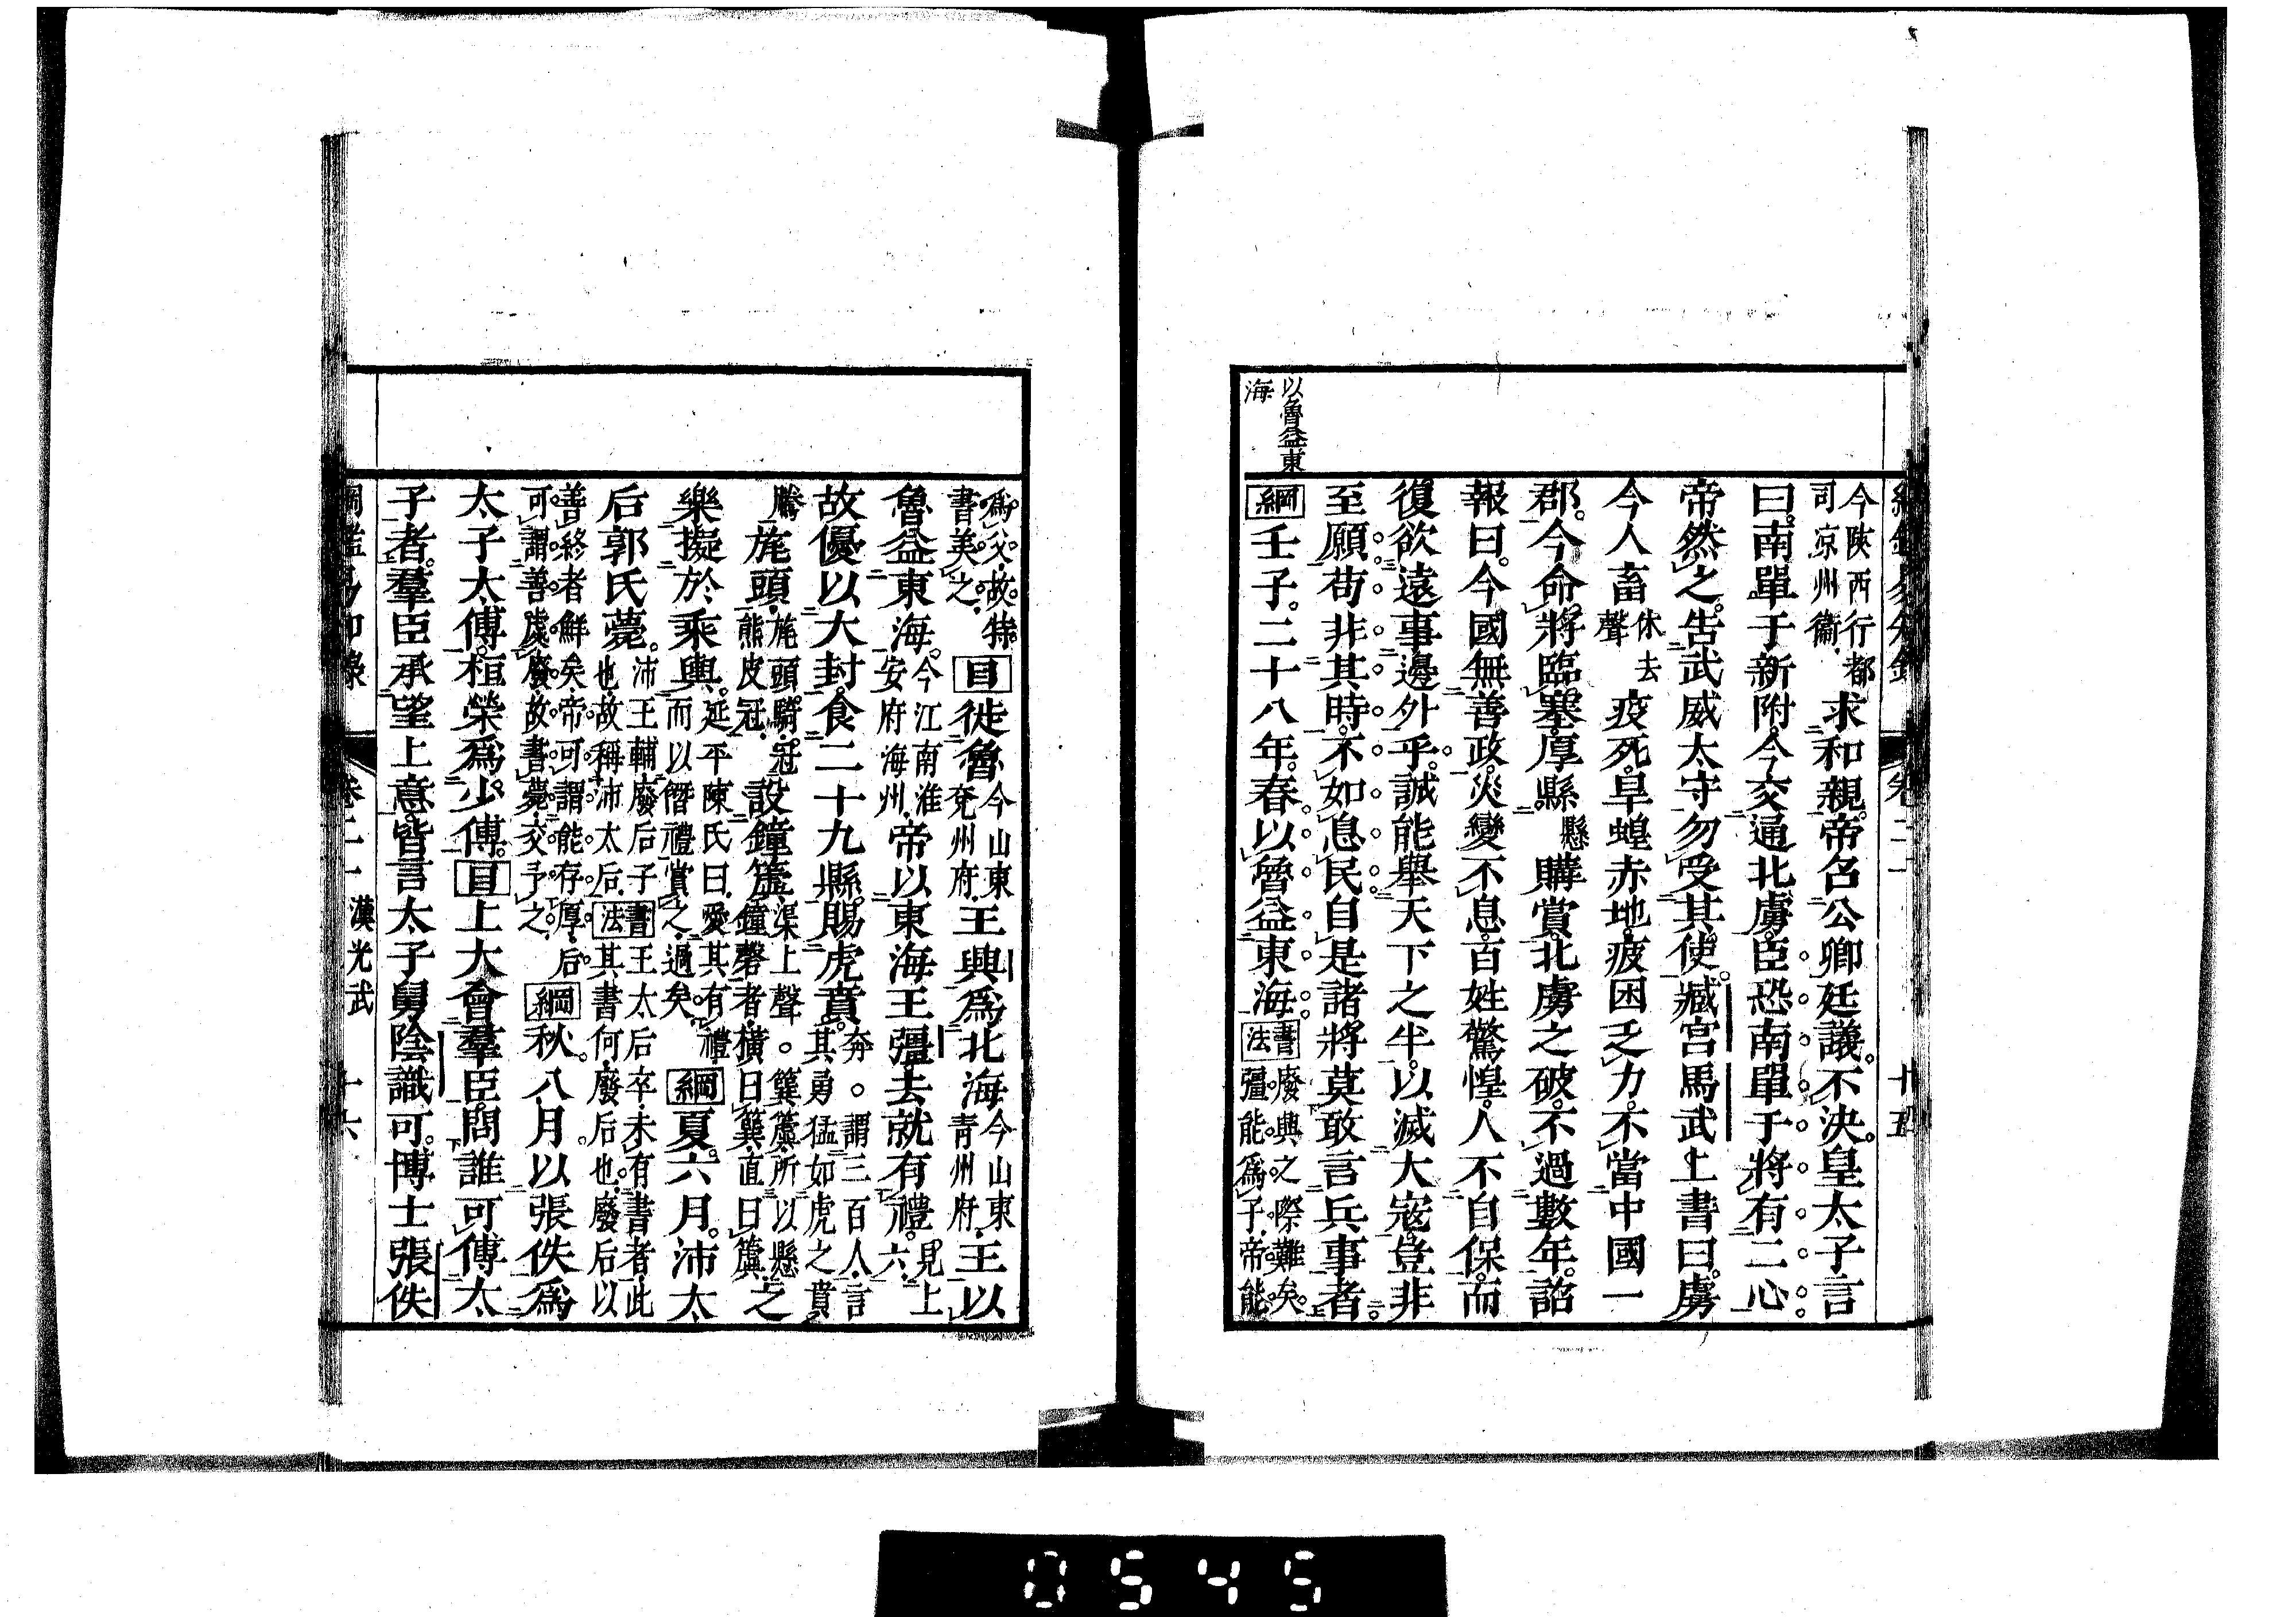 卷二十 十五
以魯益東
海
今陝西行都司凉州衞求和親。帝召公卿廷議。不決。皇太子言
曰。南單于新附。今交通北虜。臣恐南單于將有二心。
帝然之。告武威太守勿受其使。臧宮馬武上書曰。虜
今人畜休去聲疫死。旱蝗赤地。疲困乏力。不當中國一
郡。今命將臨塞。厚縣懸購賞。北虜之破。不過數年。詔
報曰。今國無善政。災變不息。百姓驚惶。人不自保。而
復欲遠事邊外乎。誠能舉天下之半。以滅大寇。豈非
至願。苟非其時。不如息民。自是諸將莫敢言兵事者。
綱壬子。二十八年。春。以魯益東海。書法廢興之際難矣。彊能爲子。帝能
爲父。故特書美之。目徙魯今山東兗州府。王興爲北海今山東青州府。王以
魯益東海。今江南淮安府海州。帝以東海王彊。去就有禮。見上六。
故優以大封。食二十九縣。賜虎賁。奔。謂三百人。言其勇猛如虎之賁
騰旄頭。旄頭騎。冠熊皮冠。設鐘簴。渠上聲。簨簴所以懸鐘磬者。橫曰簨。直曰簴。之
樂。擬於乘輿。延平陳氏曰。愛其有禮而以僭禮賞之。過矣。綱夏。六月。沛太
后郭氏薨。沛王輔廢后子也。故稱沛太后。書法王太后卒。未有書者。此其書何。廢后也。廢后以
善終者鮮矣。帝可謂能存厚。后可謂善處廢。故書薨。交予之。綱秋。八月。以張佚爲
太子太傅。桓榮爲少傅。目上大會羣臣。問誰可傅太
子者。羣臣承望上意。皆言太子舅陰識可。博士張佚
卷二十 漢光武 十六
0545